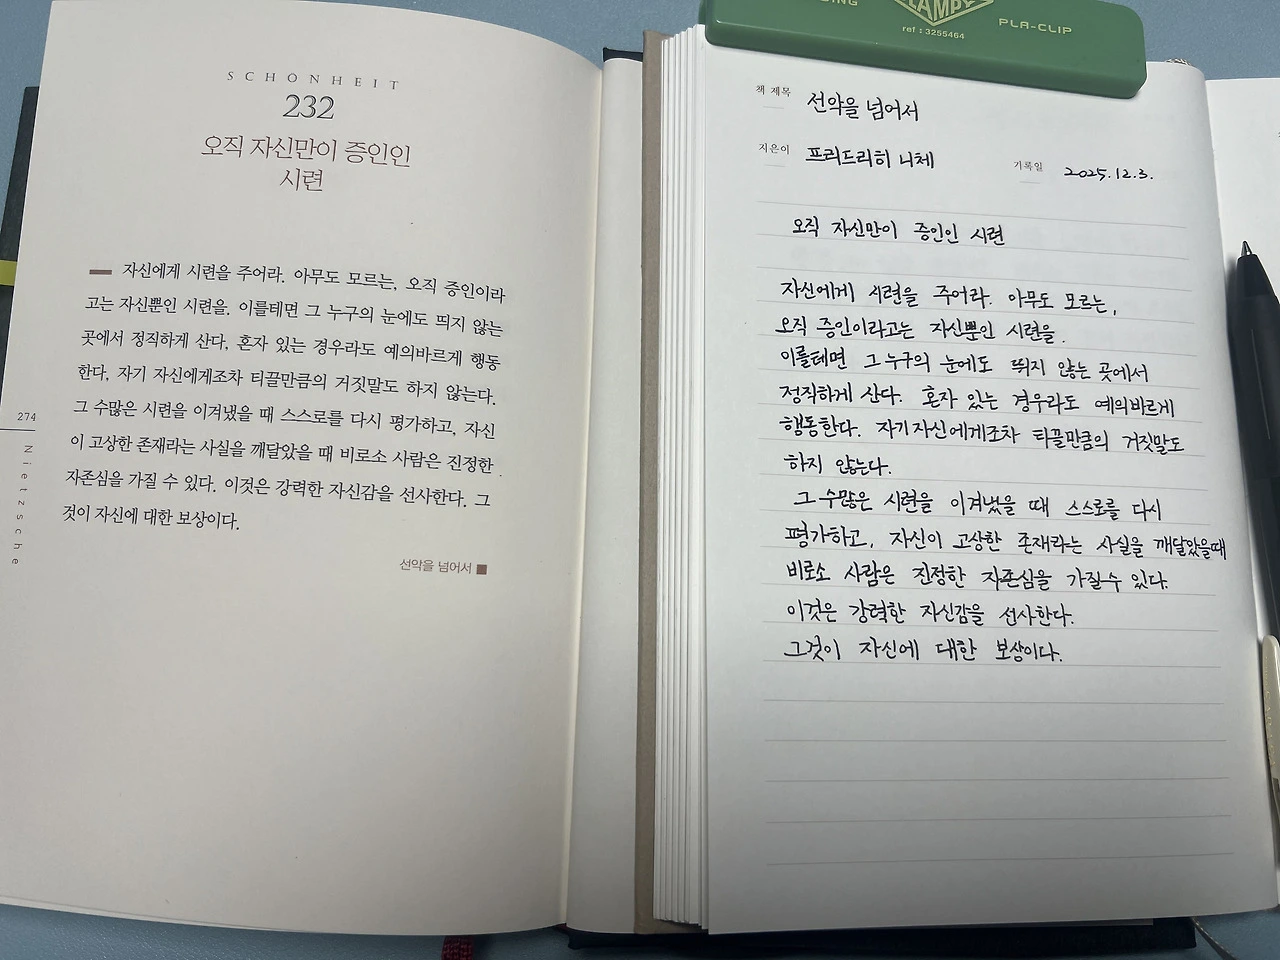 SCHÖNHEIT
232
오직 자신만이 증인인
시련
자신에게 시련을 주어라. 아무도 모르는, 오직 증인이라
고는 자신뿐인 시련을. 이를테면 그 누구의 눈에도 띄지 않는
곳에서 정직하게 산다, 혼자 있는 경우라도 예의바르게 행동
한다, 자기 자신에게조차 티끌만큼의 거짓말도 하지 않는다.
그 수많은 시련을 이겨냈을 때 스스로를 다시 평가하고, 자신
이 고상한 존재라는 사실을 깨달았을 때 비로소 사람은 진정한
자존심을 가질 수 있다. 이것은 강력한 자신감을 선사한다. 그
것이 자신에 대한 보상이다.
선악을 넘어서
274
Nietzsche
PLA-CLIP
ref : 3255464
책 제목
선악을 넘어서
지은이
프리드리히 니체
기록일
2025.12.3.
오직 자신만이 증인인 시련
자신에게 시련을 주어라. 아무도 모르는,
오직 증인이라고는 자신뿐인 시련을.
이를테면 그 누구의 눈에도 띄지 않는 곳에서
정직하게 산다. 혼자 있는 경우라도 예의바르게
행동한다. 자기자신에게조차 티끌만큼의 거짓말도
하지 않는다.
그 수많은 시련을 이겨냈을 때 스스로를 다시
평가하고, 자신이 고상한 존재라는 사실을 깨달았을때
비로소 사람은 진정한 자존심을 가질수 있다.
이것은 강력한 자신감을 선사한다.
그것이 자신에 대한 보상이다.